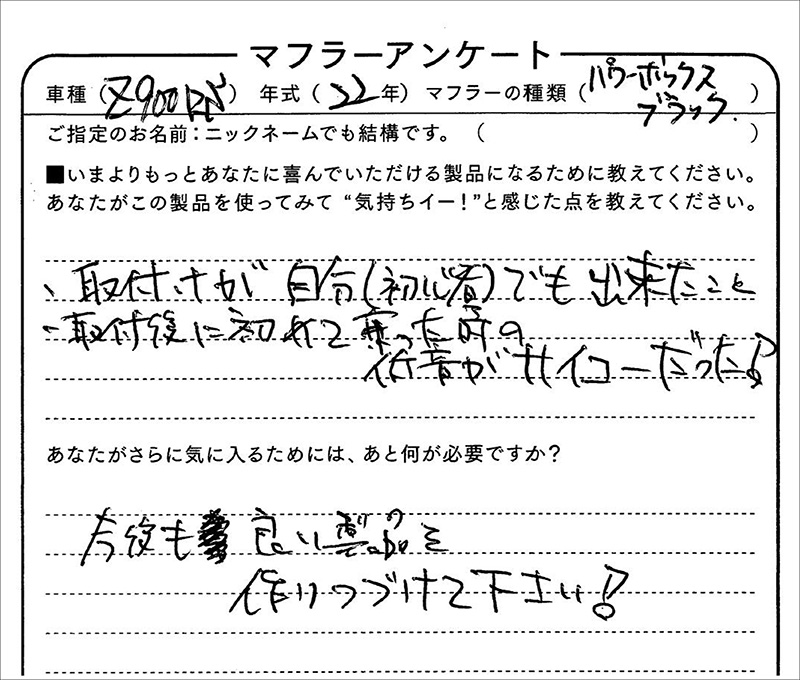 マフラーアンケート
車種（Z900RS） 年式（22年）マフラーの種類（パワーボックスブラック.）
ご指定のお名前：ニックネームでも結構です。（ ）
■いまよりもっとあなたに喜んでいただける製品になるために教えてください。
あなたがこの製品を使ってみて“気持ちイー！”と感じた点を教えてください。
・取付けが自分(初心者)でも出来たこと
・取付後に初めて乗った時の
低音がサイコーだった！
あなたがさらに気に入るためには、あと何が必要ですか？
今後も良い製品を
作りつづけて下さい！